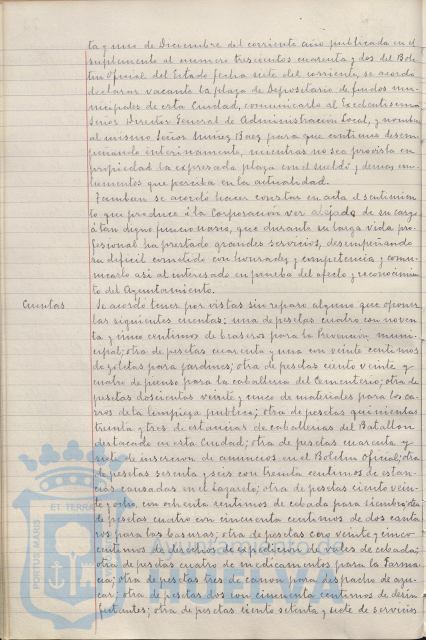 ta y uno de Diciembre del corriente año publicada en el
suplemento al numero trescientos cuarenta y dos del Bole
tin Oficial del Estado fecha siete del corriente, se acordo
declarar vacante la plaza de Depositario de fondos mu-
nicipales de esta Ciudad, comunicarlo al Excelentisimo
Señor Director General de Administración Local, y nombrar
al mismo Señor Nuñez Baez para que continue desem
peñando interinamente, mientras no sea provista en
propiedad la expresada plaza con el sueldo y demas emo-
lumentos que perciba en la actualidad.
Tambien se acordó hacer constar en acta el sentimien
to que produce á la Corporación ver alejado de su cargo
á tan digno funcionario, que durante su larga vida pro-
fesional ha prestado grandes servicios, desempeñando
su dificil cometido con honradez y competencia y comu-
nicarlo asi al interesado en prueba del afecto y reconocimien
to del Ayuntamiento.
Cuentas
Se acordo tener por vistas sin reparo alguno que oponer
las siguientes cuentas: una de pesetas cuatro con noven
ta y cinco centimos de braseros para la Prevencion muni-
cipal; otra de pesetas cuarenta y una con veinte centimos
de goletas para jardines; otra de pesetas ciento veinte y
cuatro de pienso para la caballeria del Cementerio; otra de
pesetas doscientas veinte y cinco de materiales para los ca-
rros de la limpieza publica; otra de pesetas quinientas
treinta y tres de estancias de caballerias del Batallon
destacado en esta Ciudad; otra de pesetas cuarenta y
siete de insercion de anuncios en el Boletin Oficial; otra
de pesetas sesenta y seis con treinta centimos de estan-
cias causadas en el Lazareto; otra de pesetas ciento vein-
te y ocho con ochenta centimos de cebada para siembra; otra
de pesetas cuatro con cincuenta centimos de dos canta
ros para las basuras; otra de pesetas con veinte y cinco
centimos de derechos de expedicion de vales de cebada;
otra de pesetas cuatro de medicamentos para la Farma
cia; otra de pesetas tres de canon para despacho de azu-
car; otra de pesetas dos con cincuenta centimos de desin
fectantes; otra de pesetas ciento setenta y siete de servicios
ET TERRA
PORTUS MARIS